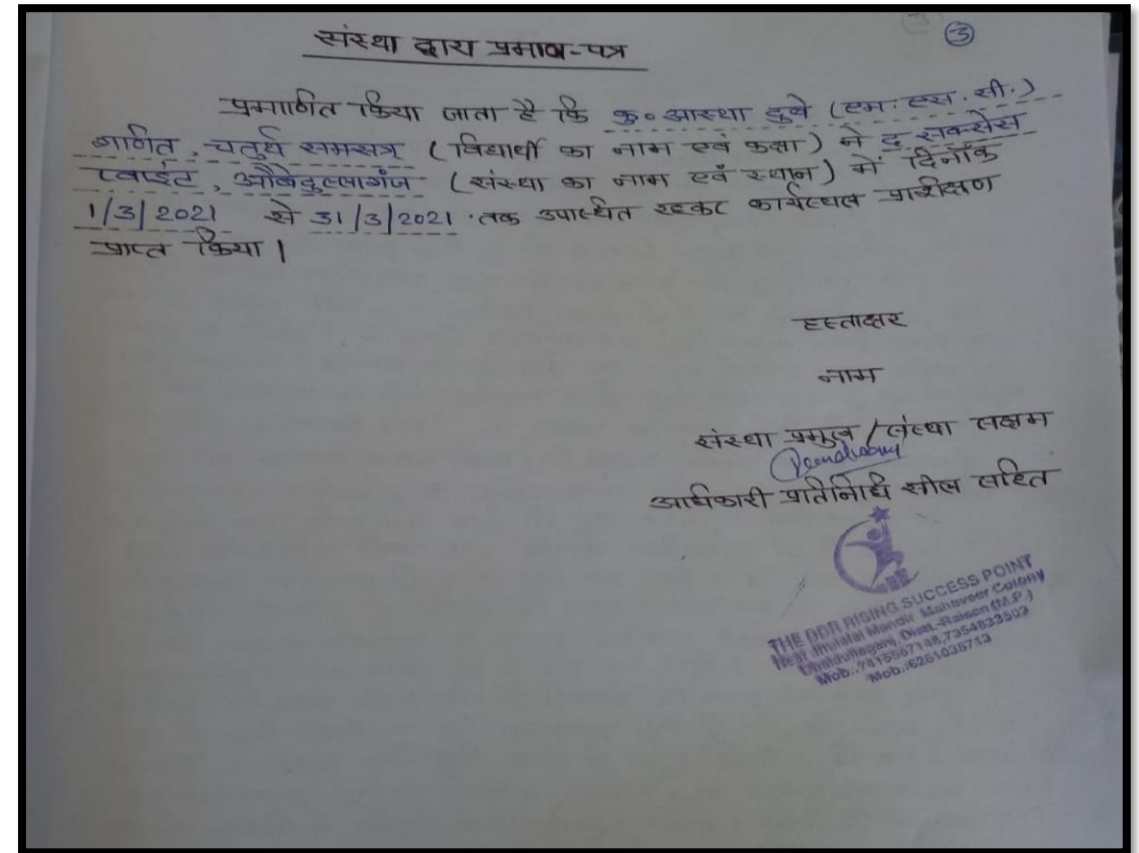 ③
संस्था द्वारा प्रमाण-पत्र
प्रमाणित किया जाता है कि कु० आस्था दुबे (एम. एस. सी.)
गणित, चतुर्थ समसत्र (विद्यार्थी का नाम एवं कक्षा) ने द सक्सेस
प्वाइंट, औबेदुल्लागंज (संस्था का नाम एवं स्थान) में दिनाँक
1/3/2021 से 31/3/2021 तक उपस्थित रहकर कार्यस्थल प्रशिक्षण
प्राप्त किया।
हस्ताक्षर
नाम
संस्था प्रमुख / संस्था सक्षम
अधिकारी प्रतिनिधि सील सहित
THE RISING SUCCESS POINT
Near Jhulelal Mandir Mahaveer Colony
Distt.-Raisen (M.P.)
Mob.:7354833503
Mob.:6261036713